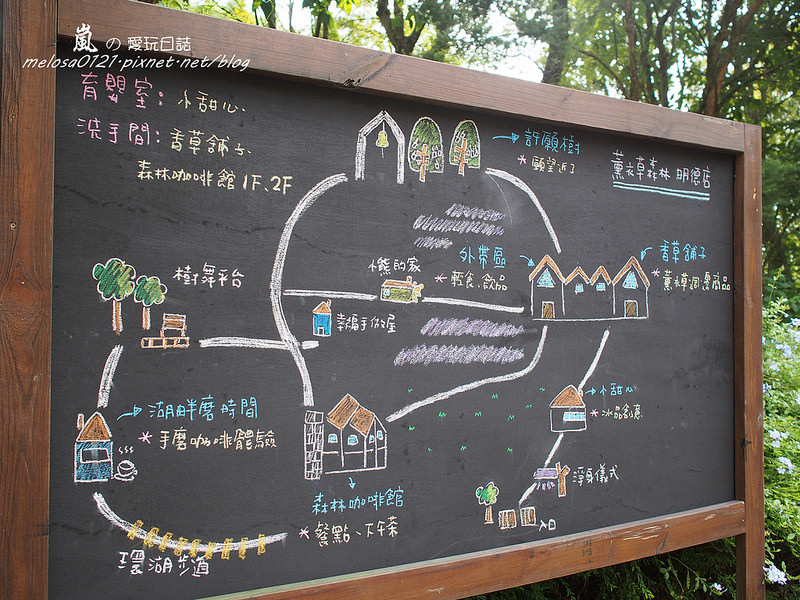 嵐の愛玩日誌
melosa0121.pixnet.net/blog
育嬰室：小甜心
洗手間：香草舖子
森林咖啡館 1F、2F
許願樹
*願望近了
薰衣草森林 明德店
樹舞平台
小熊的家
外帶區
*輕食、飲品
香草舖子
幸福手做屋
湖畔磨時間
*手磨咖啡體驗
小甜心
森林咖啡館
*餐點、下午茶
淨身儀式
入口
環湖步道